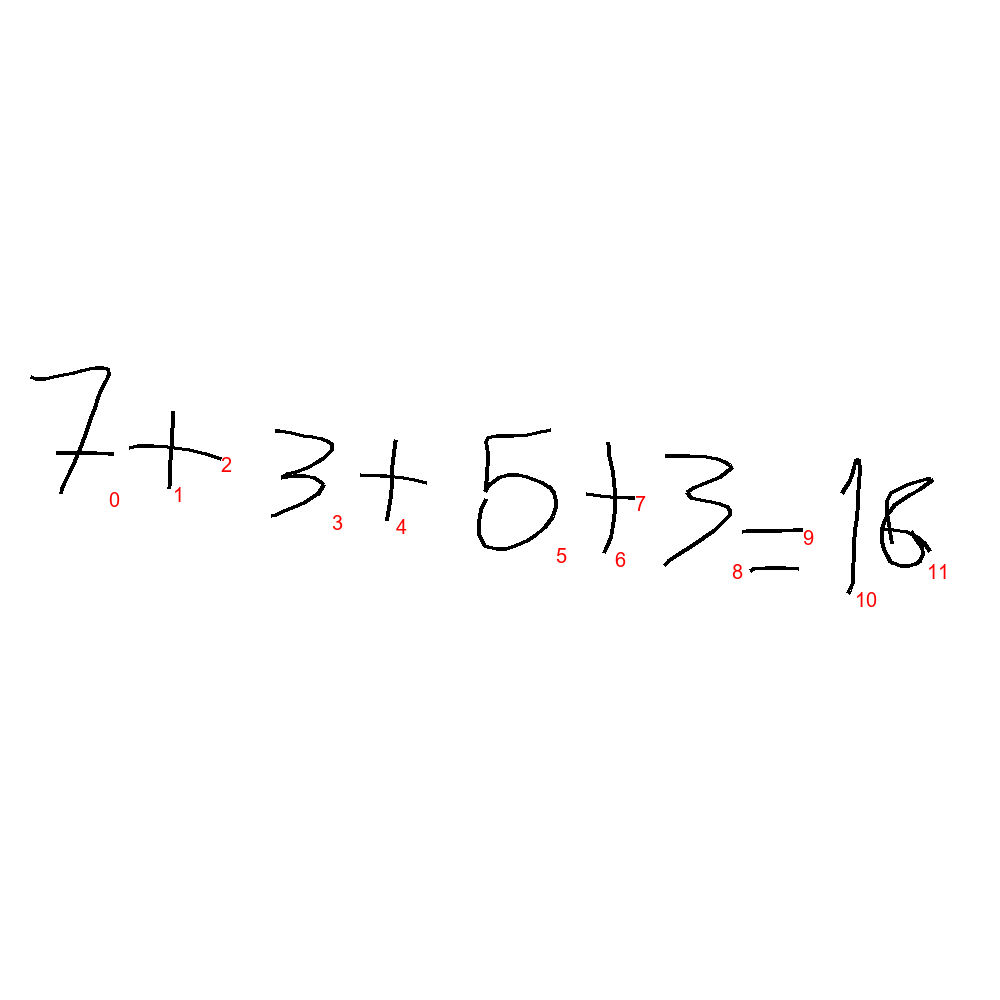 7+3+5+3=18
0 1 2 3 4 5 6 7 8 9 10 11